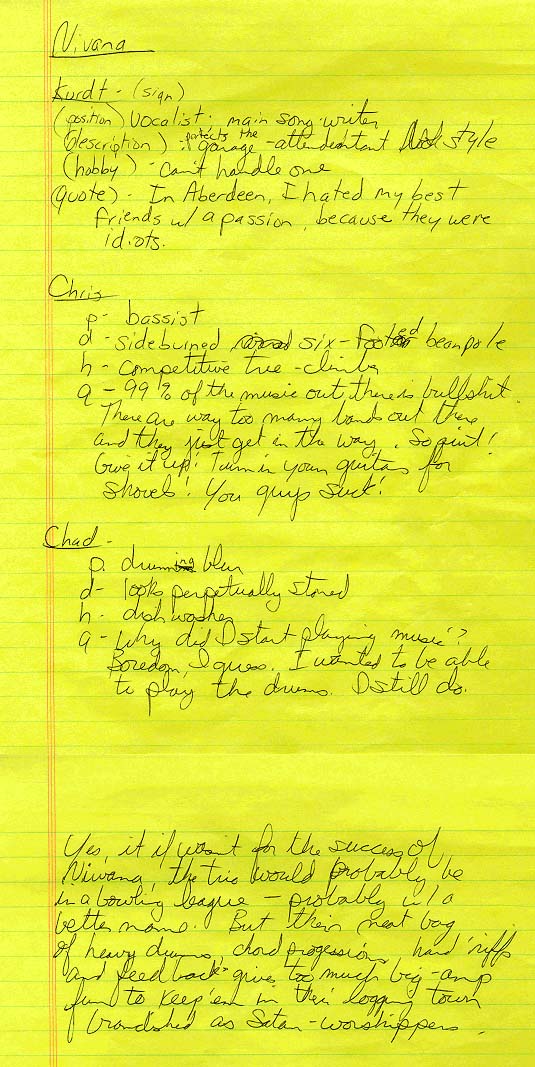 Nivana
Kurdt - (sign)
(position) Vocalist. main song-writer
(description) - perfects the garage-attendant look style
(hobby) - can't handle one
(quote) - In Aberdeen, I hated my best
friends w/ a passion, because they were
idiots.
Chris -
p - bassist
d - sideburned six-footed beanpole
h - competitive tree-climber
q - 99% of the music out there is bullshit.
There are way too many bands out there
and they just get in the way. So quit!
Give it up! Turn in your guitars for
shovels! You guys suck!
Chad -
p. drumming blur
d - looks perpetually stoned
h - dishwasher
q - Why did I start playing music?
Boredom, I guess. I wanted to be able
to play the drums. I still do.
Yes, it if wasnt for the success of
Nivvana, the trio would probably be
in a bowling league - probably w/ a
better name. But their neat bag
of heavy drums, chord progessions, hard riffs
and feedback give too much big-amp
fun to keep em in their logging town
brandished as Satan-worshippers.